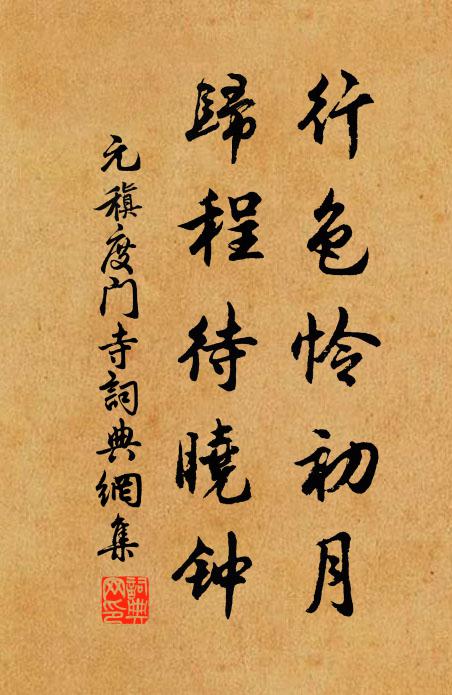 行色怜初月
歸程待曉钟
元稹度门寺詞典網集
詞典网印